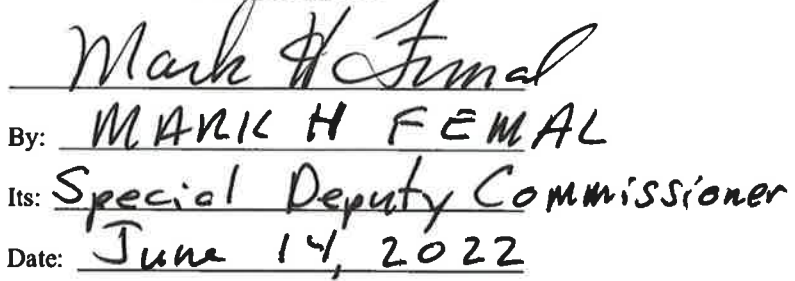 Mark H Femal
By: MARK H FEMAL
Its: Special Deputy Commissioner
Date: June 14, 2022